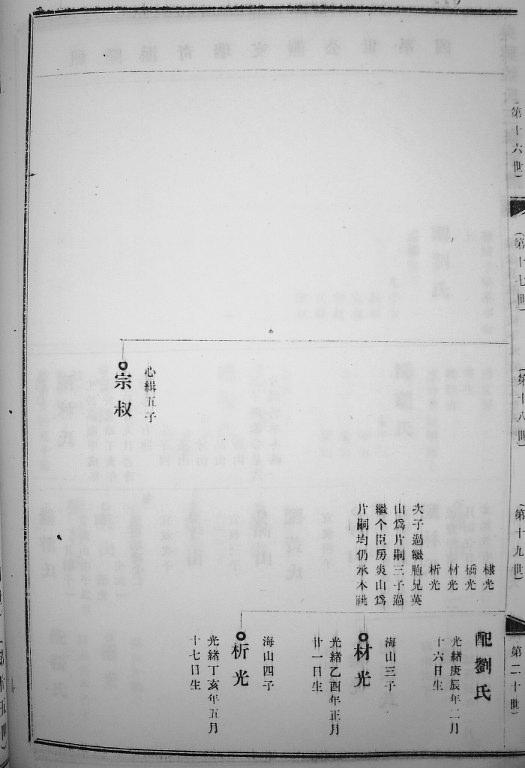 （第十六世）
（第十七世）
（第十八世）
（第十九世）
（第二十世）
心緝五子
宗叔
棣光
橋光
材光
析光
次子過繼胞兄英
山爲片嗣三子過
繼个臣房炎山爲
片嗣均仍承本祧
配劉氏
光緒庚辰年二月
十六日生
海山三子
材光
光緒乙酉年正月
廿一日生
海山四子
析光
光緒丁亥年五月
十七日生